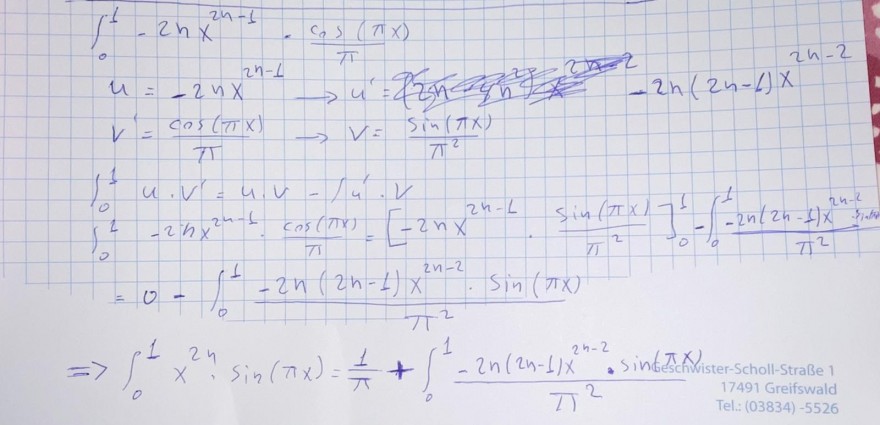 ∫₀¹ -2nx^(2n-1) · cos(πx)/π
u = -2nx^(2n-1) → u' = -2n(2n-1)x^(2n-2)
v' = cos(πx)/π → v = sin(πx)/π²
∫₀¹ u·v' = u·v - ∫u'·v
∫₀¹ -2nx^(2n-1) · cos(πx)/π = [-2nx^(2n-1) · sin(πx)/π²]₀¹ - ∫₀¹ -2n(2n-1)x^(2n-2)·sin(πx)/π²
= 0 - ∫₀¹ -2n(2n-1)x^(2n-2) · sin(πx)/π²
=> ∫₀¹ x^(2n) · sin(πx) = 1/π + ∫₀¹ -2n(2n-1)x^(2n-2) · sin(πx)/π²
eschwister-Scholl-Straße 1
17491 Greifswald
Tel.: (03834) -5526